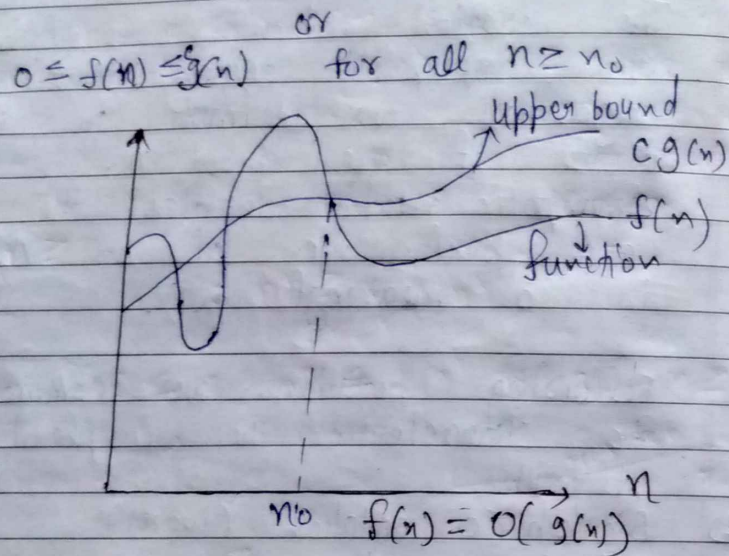 or
0 ≤ f(n) ≤ cg(n) for all n ≥ n₀
upper bound
c g(n)
f(n)
function
n
n₀ f(n) = O(g(n))